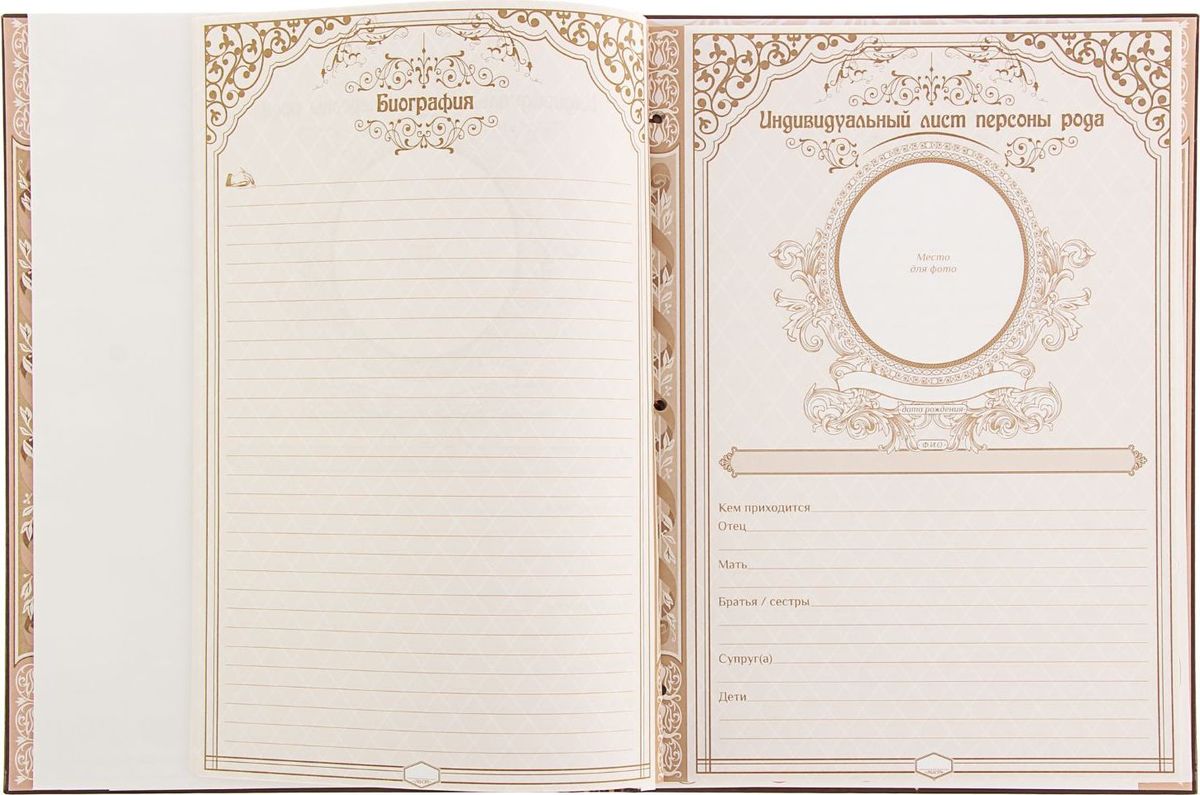 Биография
Индивидуальный лист персоны рода
Место
для фото
дата рождения
ФИО
Кем приходится
Отец
Мать
Братья / сестры
Супруг(а)
Дети